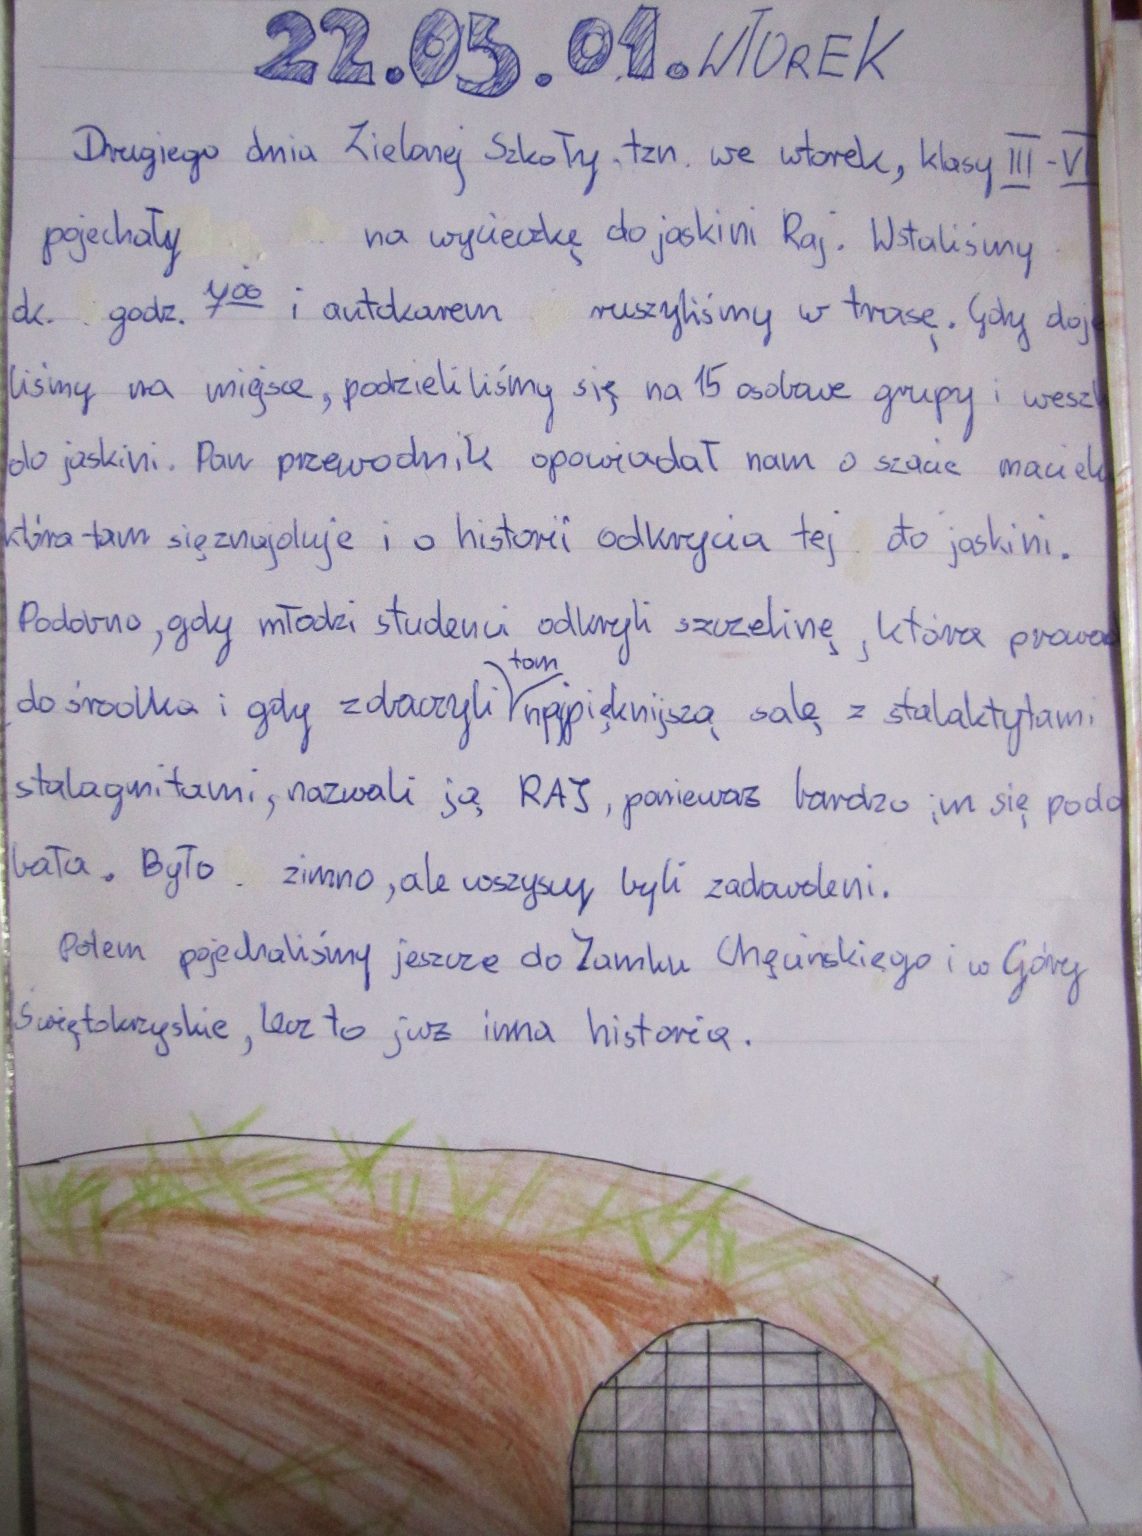 22.05.01. WTOREK
Drugiego dnia Zielonej Szkoły, tzn. we wtorek, klasy III-VI
pojechały na wycieczkę do jaskini Raj. Wstaliśmy
ok. godz. 7⁰⁰ i autokarem ruszyliśmy w trasę. Gdy doje
liśmy na miejsce, podzieliliśmy się na 15 osobowe grupy i weszl
do jaskini. Pan przewodnik opowiadał nam o szacie
która tam się znajduje i o historii odkrycia tej do jaskini.
Podobno, gdy młodzi studenci odkryli szczelinę, która prowad
do środka i gdy zobaczyli tam najpięknijszą salę z stalaktytami
stalagmitami, nazwali ją RAJ, ponieważ bardzo im się podo
bała. Było zimno, ale wszyscy byli zadowoleni.
Potem pojechaliśmy jeszcze do Zamku Chęcińskiego i w Góry
Świętokrzyskie, lecz to już inna historia.